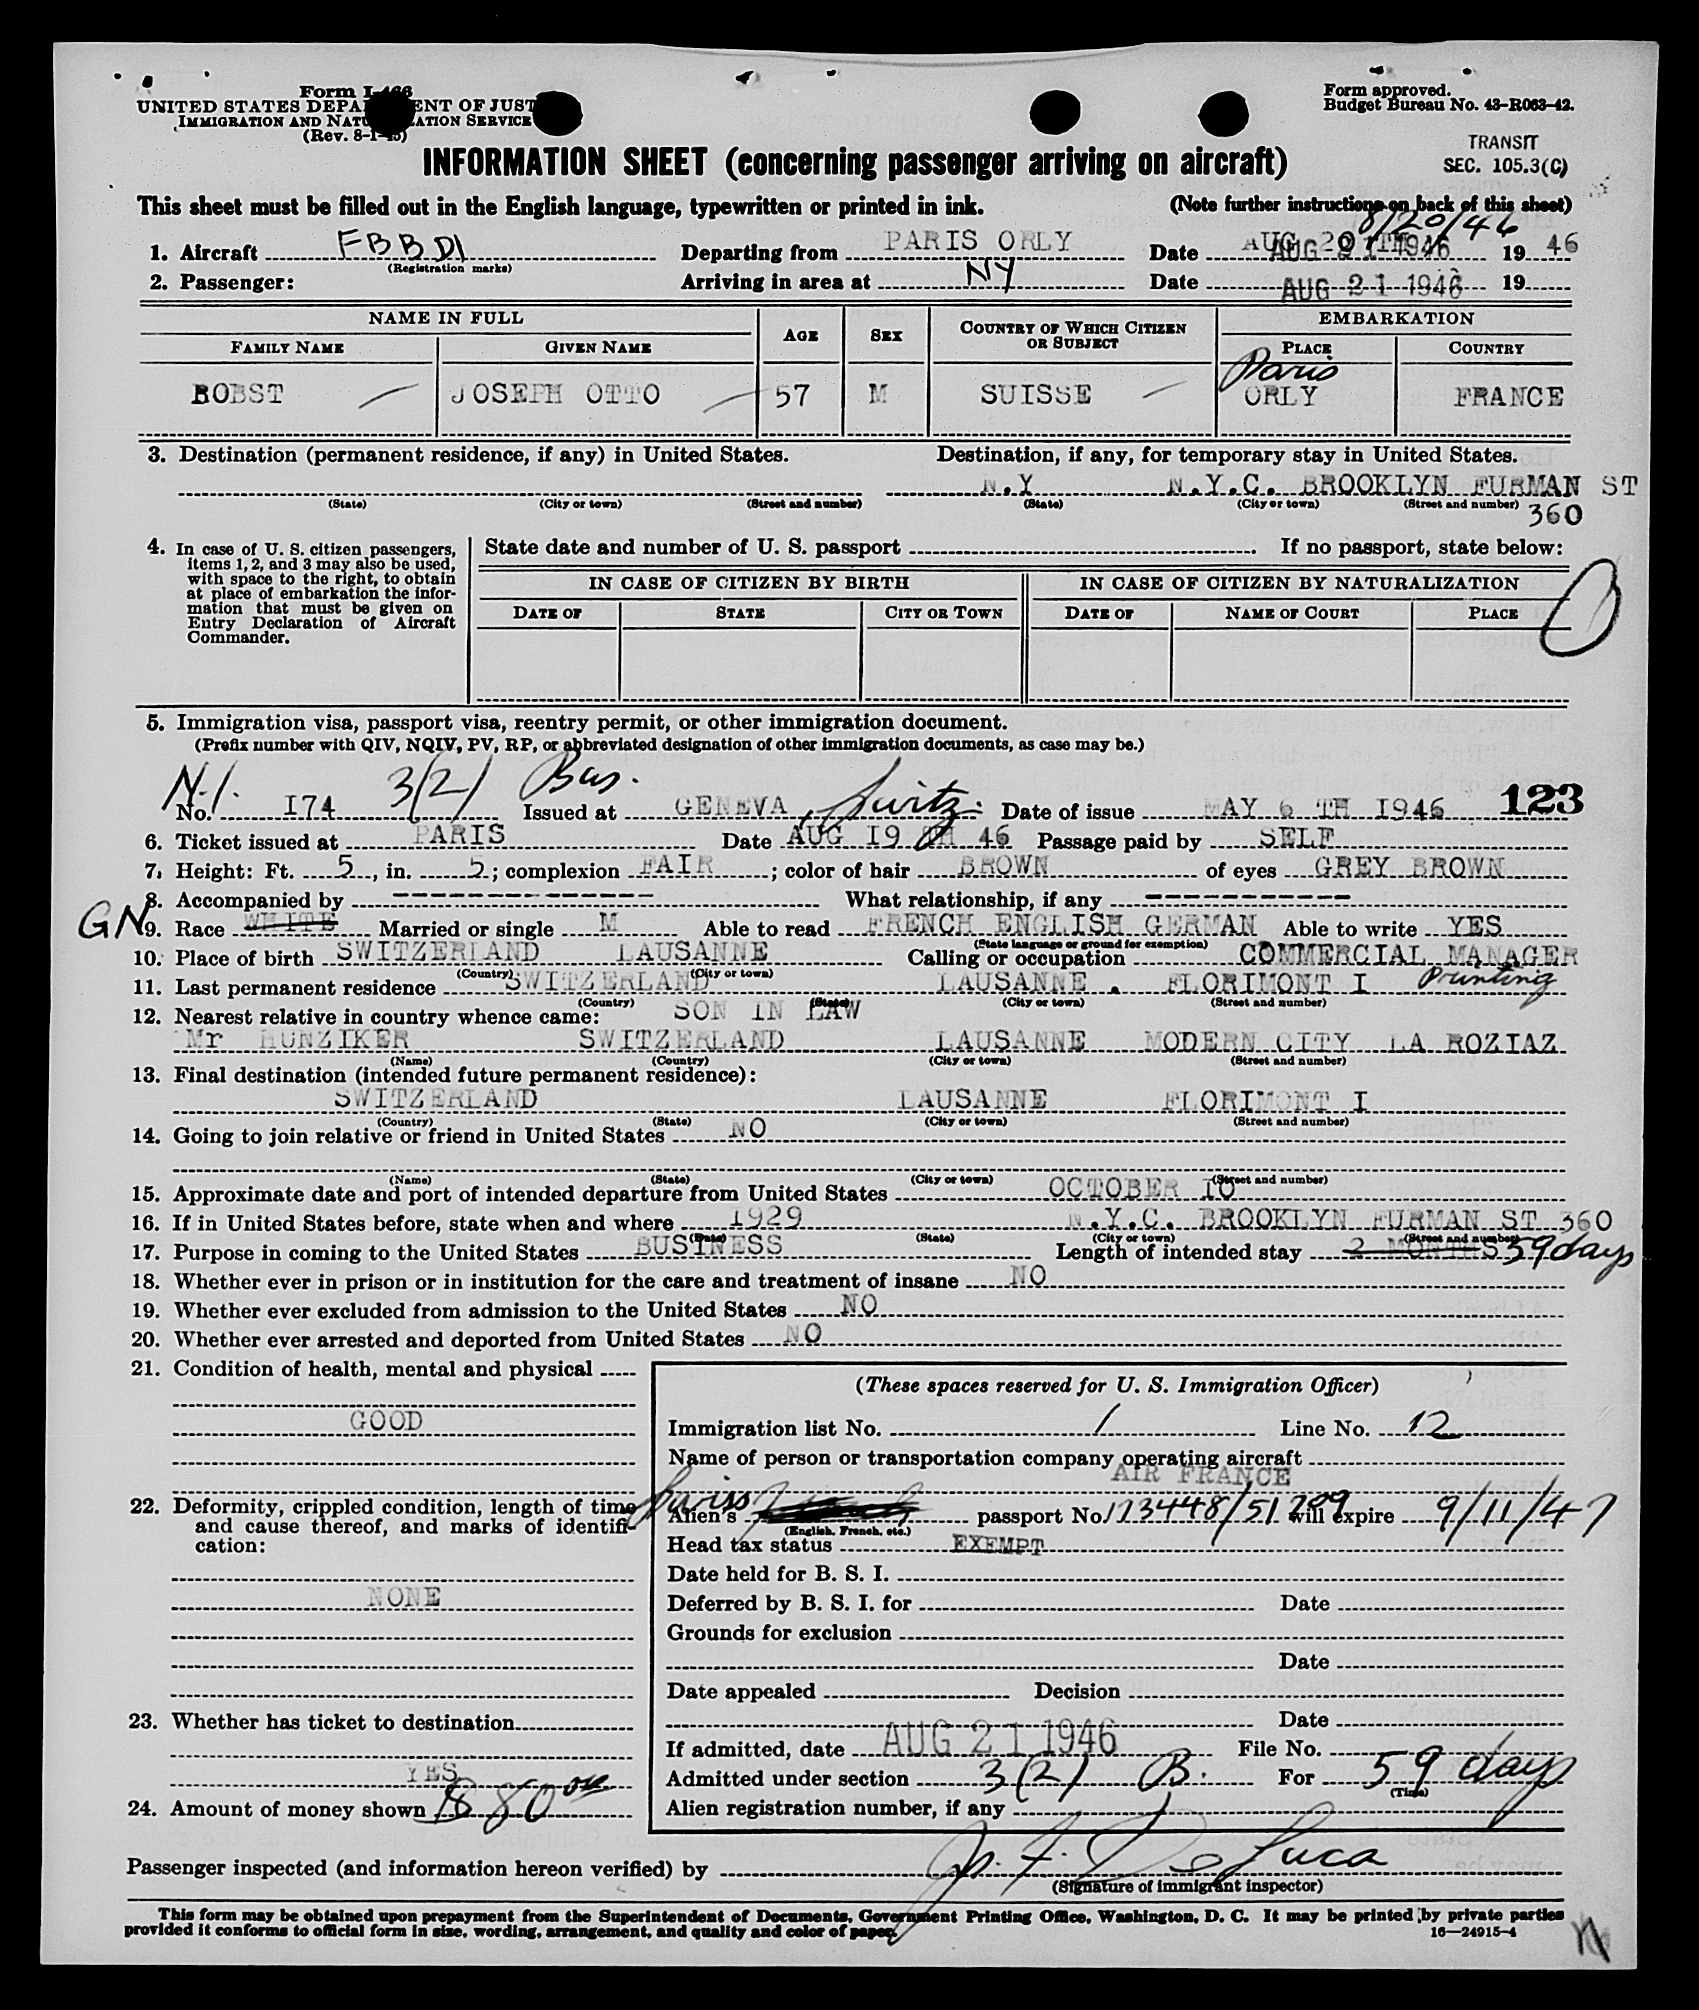 Form I-466
UNITED STATES DEPARTMENT OF JUSTICE
IMMIGRATION AND NATURALIZATION SERVICE
(Rev. 8-1-45)
Form approved.
Budget Bureau No. 43-R063-42.
TRANSIT
SEC. 105.3(C)
INFORMATION SHEET (concerning passenger arriving on aircraft)
This sheet must be filled out in the English language, typewritten or printed in ink. (Note further instructions on back of this sheet)
8/20/46
1. Aircraft FBBDI Departing from PARIS ORLY Date AUG 20 TH 1946 19 46
(Registration marks)
2. Passenger: Arriving in area at NY Date AUG 21 1946 19
NAME IN FULL AGE SEX COUNTRY OF WHICH CITIZEN OR SUBJECT EMBARKATION
FAMILY NAME GIVEN NAME PLACE COUNTRY
Paris
BOBST JOSEPH OTTO 57 M SUISSE ORLY FRANCE
3. Destination (permanent residence, if any) in United States. Destination, if any, for temporary stay in United States.
N.Y N.Y.C. BROOKLYN FURMAN ST
(State) (City or town) (Street and number) (State) (City or town) (Street and number) 360
4. In case of U. S. citizen passengers, items 1, 2, and 3 may also be used, with space to the right, to obtain at place of embarkation the information that must be given on Entry Declaration of Aircraft Commander.
State date and number of U. S. passport If no passport, state below:
IN CASE OF CITIZEN BY BIRTH IN CASE OF CITIZEN BY NATURALIZATION
DATE OF STATE CITY OR TOWN DATE OF NAME OF COURT PLACE
5. Immigration visa, passport visa, reentry permit, or other immigration document.
(Prefix number with QIV, NQIV, PV, RP, or abbreviated designation of other immigration documents, as case may be.)
N.I. 3(2) Bus.
No. I74 Issued at GENEVA, Switz. Date of issue MAY 6 TH I946 123
6. Ticket issued at PARIS Date AUG I9 TH 46 Passage paid by SELF
7. Height: Ft. 5, in. 5; complexion FAIR; color of hair BROWN of eyes GREY BROWN
8. Accompanied by ------------ What relationship, if any ------------
GN 9. Race WHITE Married or single M Able to read FRENCH ENGLISH GERMAN Able to write YES
(State language or ground for exemption)
10. Place of birth SWITZERLAND LAUSANNE Calling or occupation COMMERCIAL MANAGER
(Country) (City or town) Printing
11. Last permanent residence SWITZERLAND LAUSANNE . FLORIMONT I
(Country) (State) (City or town) (Street and number)
12. Nearest relative in country whence came: SON IN LAW
Mr HUNZIKER SWITZERLAND LAUSANNE MODERN CITY LA ROZIAZ
(Name) (Country) (City or town) (Street and number)
13. Final destination (intended future permanent residence):
SWITZERLAND LAUSANNE FLORIMONT I
(Country) (State) (City or town) (Street and number)
14. Going to join relative or friend in United States NO
(Name) (State) (City or town) (Street and number)
15. Approximate date and port of intended departure from United States OCTOBER I0
16. If in United States before, state when and where 1929 N.Y.C. BROOKLYN FURMAN ST 360
(Date) (State) (City or town) (Street and number)
17. Purpose in coming to the United States BUSINESS Length of intended stay 2 MONTHS 59 days
18. Whether ever in prison or in institution for the care and treatment of insane NO
19. Whether ever excluded from admission to the United States NO
20. Whether ever arrested and deported from United States NO
21. Condition of health, mental and physical
GOOD
22. Deformity, crippled condition, length of time and cause thereof, and marks of identification:
NONE
23. Whether has ticket to destination
YES
24. Amount of money shown $ 80
(These spaces reserved for U. S. Immigration Officer)
Immigration list No. 1 Line No. 12
Name of person or transportation company operating aircraft
AIR FRANCE
Alien's Swiss passport No. 173448/51209 will expire 9/11/47
(English, French, etc.)
Head tax status EXEMPT
Date held for B. S. I.
Deferred by B. S. I. for Date
Grounds for exclusion
Date
Date appealed Decision
Date
If admitted, date AUG 21 1946 File No.
Admitted under section 3(2) B. For 59 days
(Time)
Alien registration number, if any
Passenger inspected (and information hereon verified) by J. F. DeLuca
(Signature of immigrant inspector)
This form may be obtained upon prepayment from the Superintendent of Documents, Government Printing Office, Washington, D. C. It may be printed by private parties
provided it conforms to official form in size, wording, arrangement, and quality and color of paper.
16—24915-4